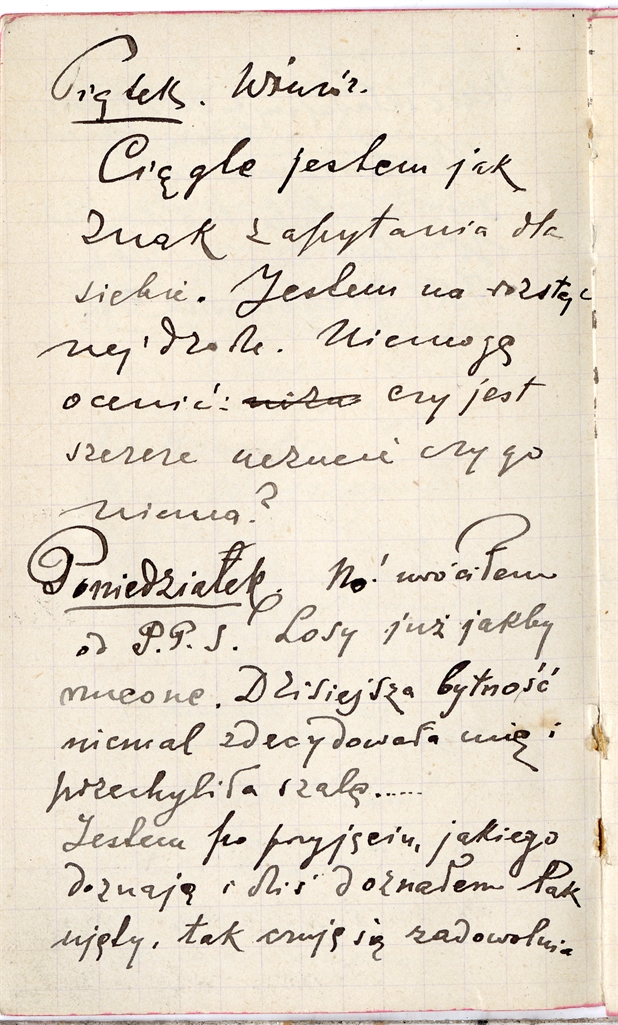 Piątek. Wtorek.
Ciągle jestem jak
znak zapytania dla
siebie. Jestem na rozstaj
nej drodze. Niemogę
ocenić: czy jest
szczere uczucie czy go
niema?
Poniedziałek. No! wróciłem
od P.P.S. Losy już jakby
rzucone. Dzisiejsza bytność
niemal zdecydowała mię i
przechyliła szalę.....
Jestem po przyjęciu, jakiego
doznają i dziś doznałem tak
ujęty, tak czuję się zadowolnio